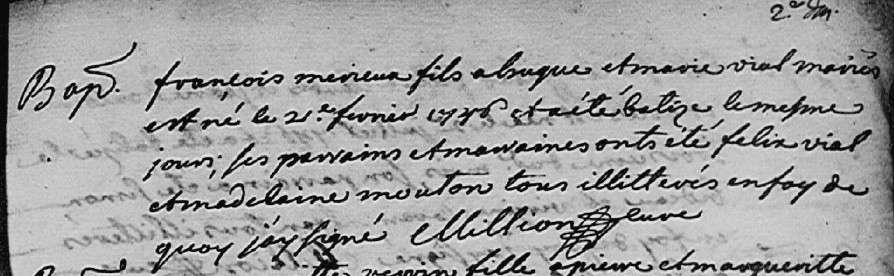 Bap.
françois merieux fils a hugue et marie vial mariés
est né le 2.e fevrier 1746 et a été batize le mesme
jours; ses parrains et marraines onts été felix vial
et madelaine mouton tous illitterés en foy de
quoy j'ay signé Million Cure
verrin fille a pierre et margueritte